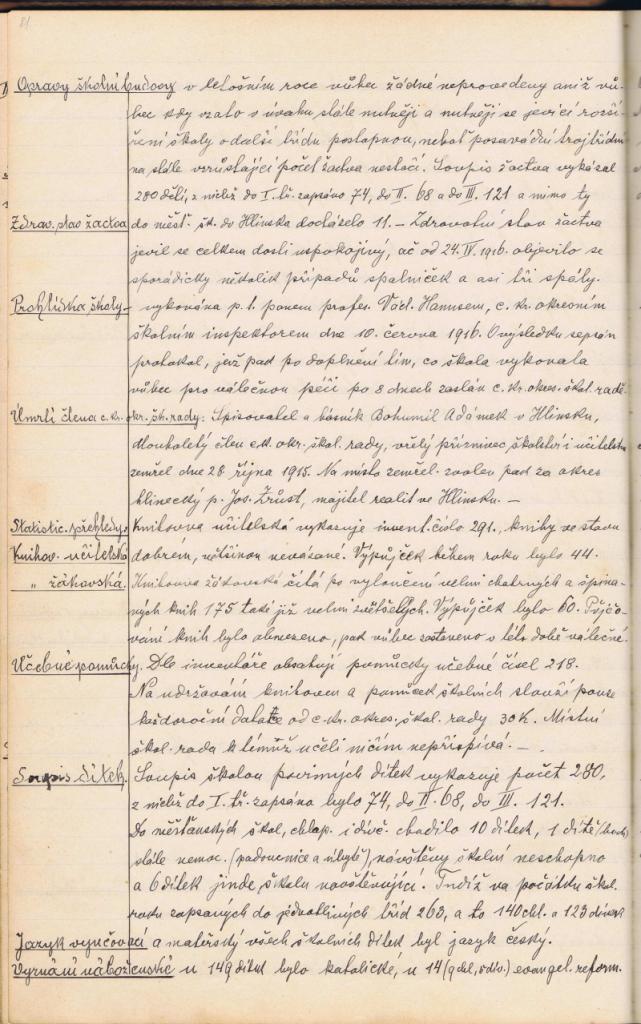 81.
Opravy školní budovy v letošním roce vůbec žádné neprovedeny aniž vů-
bec kdy vzato v úvahu stále nutněji a nutněji se jevící rozší
ření školy o další třídu postupnou, neboť posavadní trojtřídní
na stále vzrůstající počet žactva nestačí. Soupis žactva vykázal
280 dětí, z nichž do I. tř. zapsáno 74, do II. 68 a do III. 121 a mimo ty
Zdrav. stav žactva do měšť. šk. do Hlinska docházelo 11. – Zdravotní stav žactva
jevil se celkem dosti uspokojivý, ač od 24. IV. 1916 objevilo se
sporádicky několik případů spalniček a asi tři spály.
Prohlídka školy – vykonána p. t. panem profes. Václ. Hanusem, c. kr. okresním
školním inspektorem dne 10. června 1916. O výsledku sepsán
protokol, jenž pad po doplnění tím, co škola vykonala
vůbec pro válečnou péči po 8 dnech zaslán c. kr. okres. škol. radě.
Úmrtí člena c. kr. okr. šk. rady. Spisovatel a básník Bohumil Adámek v Hlinsku,
dlouholetý člen c. kr. okr. škol. rady, vřelý příznivec školství i učitelstva
zemřel dne 28 října 1915. Na místo zemřel. zvolen pad za okres
hlinecký p. Jos. Zrůst, majitel realit ve Hlinsku. –
Statistic. přehledy. Knihovna učitelská vykazuje invent. číslo 291, knihy ve stavu
Knihov. učitelská dobrém, většinou nevázané. Výpůjček během roku bylo 44.
„ žákovská. Knihovna žákovská čítá po vyloučení velmi chatrných a špina-
vých knih 175 také již velmi zvětšelých. Výpůjček bylo 60. Půjčo-
vání knih bylo obmezeno, pak vůbec zastaveno v této době válečné.
Učebné pomůcky. Dle inventáře obsahují pomůcky učebné čísel 218.
Na udržování knihoven a pomůcek školních slouží pouze
každoroční dotace od c. kr. okres. škol. rady 30 K. Místní
škol. rada k témuž účeli ničím nepřispívá. –
Soupis dítek. Soupis školou povinných dítek vykazuje počet 280,
z nichž do I. tř. zapsáno bylo 74, do II. 68, do III. 121.
Do měšťanských škol, chlap. i dívč. chodilo 10 dítek, 1 dítě
stále nemoc. (padoucnice a úbytě), návštěvy školní neschopno
a 6 dítek jinde školu navštěvující. Tudíž na počátku škol.
roku zapsaných do jednotlivých tříd 263, a to 140 chl. a 123 dívek
Jazyk vyučovací a mateřský všech školních dítek byl jazyk český.
Vyznání náboženské u 149 dítek bylo katolické, u 14 (9 chl., 5 dív.) evangel. reform.